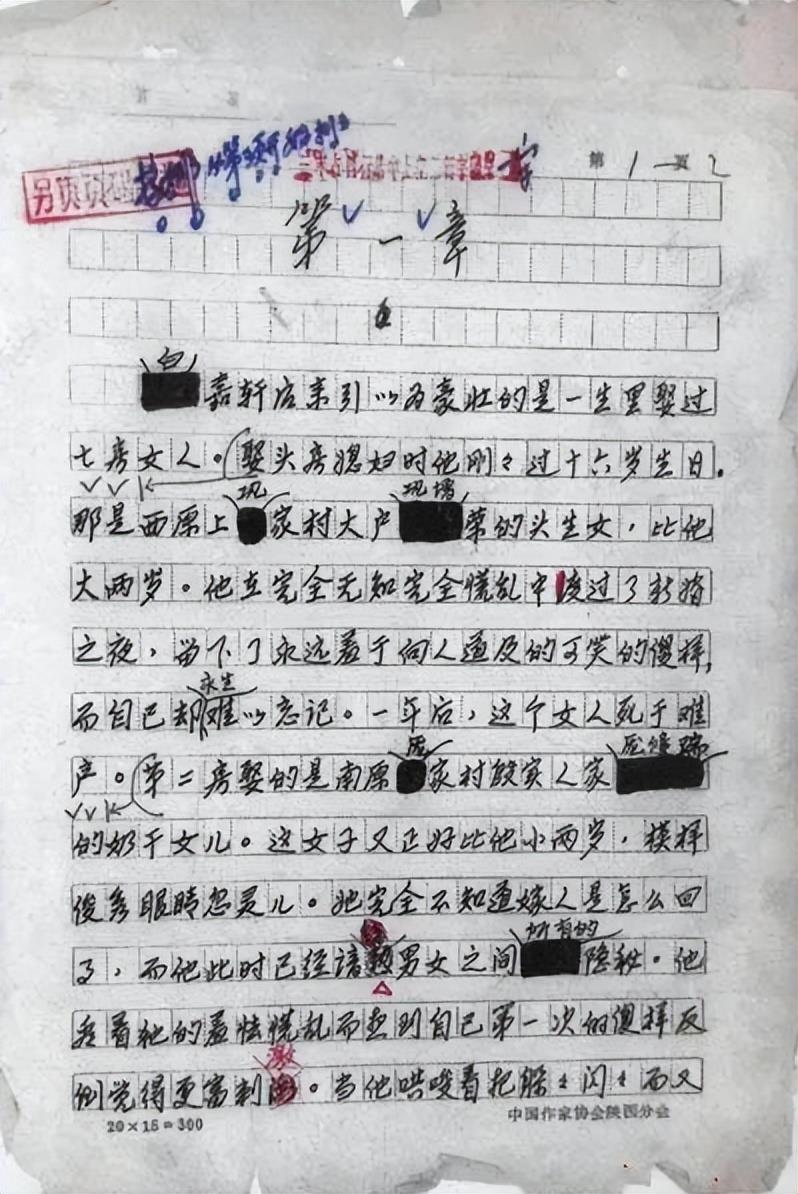 另页页码
第1页 2
第一章
白
嘉轩后来引以为豪壮的是一生里娶过
七房女人。娶头房媳妇时他刚刚过十六岁生日。
巩 巩增
那是西原上家村大户荣的头生女,比他
大两岁。他在完全无知完全慌乱中度过了新婚
之夜,留下了永远羞于向人道及的可笑的傻样,
永生
而自己却难以忘记。一年后,这个女人死于难
庞 庞修瑞
产。第二房娶的是南原家村殷实人家
的奶干女儿。这女子又正好比他小两岁,模样
俊秀眼睛忽灵儿。她完全不知道嫁人是怎么回
所有的
了,而他此时已经谙熟男女之间隐秘。他
看着她的羞怯慌乱而想到自己第一次的傻样反
激
倒觉得更富刺。当他哄唆着把躲躲闪闪而又
20×15=300
中国作家协会陕西分会